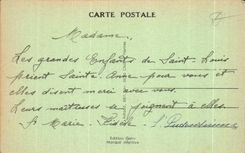 CARTE POSTALE
Madame,
Les grandes Enfants de Saint Louis
prient Sainte Anne pour vous et
elles disent merci avec vous.
Leurs maîtresses se joignent à elles
Sr Marie - Fidèle - S.
Edition